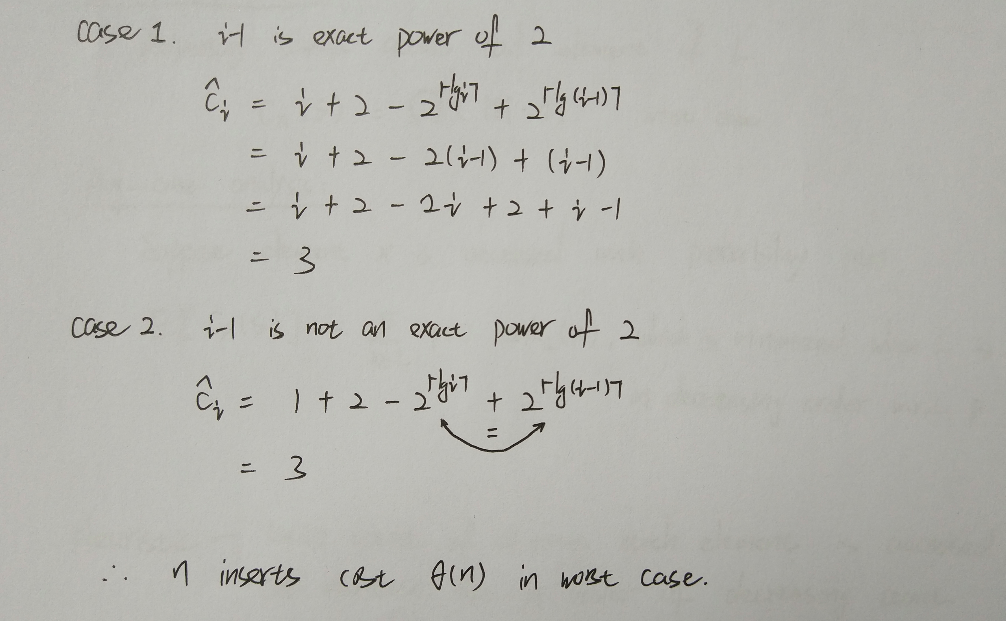 case 1. i-1 is exact power of 2
ĉᵢ = i + 2 - 2^⌈lg i⌉ + 2^⌈lg (i-1)⌉
= i + 2 - 2(i-1) + (i-1)
= i + 2 - 2i + 2 + i - 1
= 3
case 2. i-1 is not an exact power of 2
ĉᵢ = 1 + 2 - 2^⌈lg i⌉ + 2^⌈lg (i-1)⌉
=
= 3
∴ n inserts cost θ(n) in worst case.